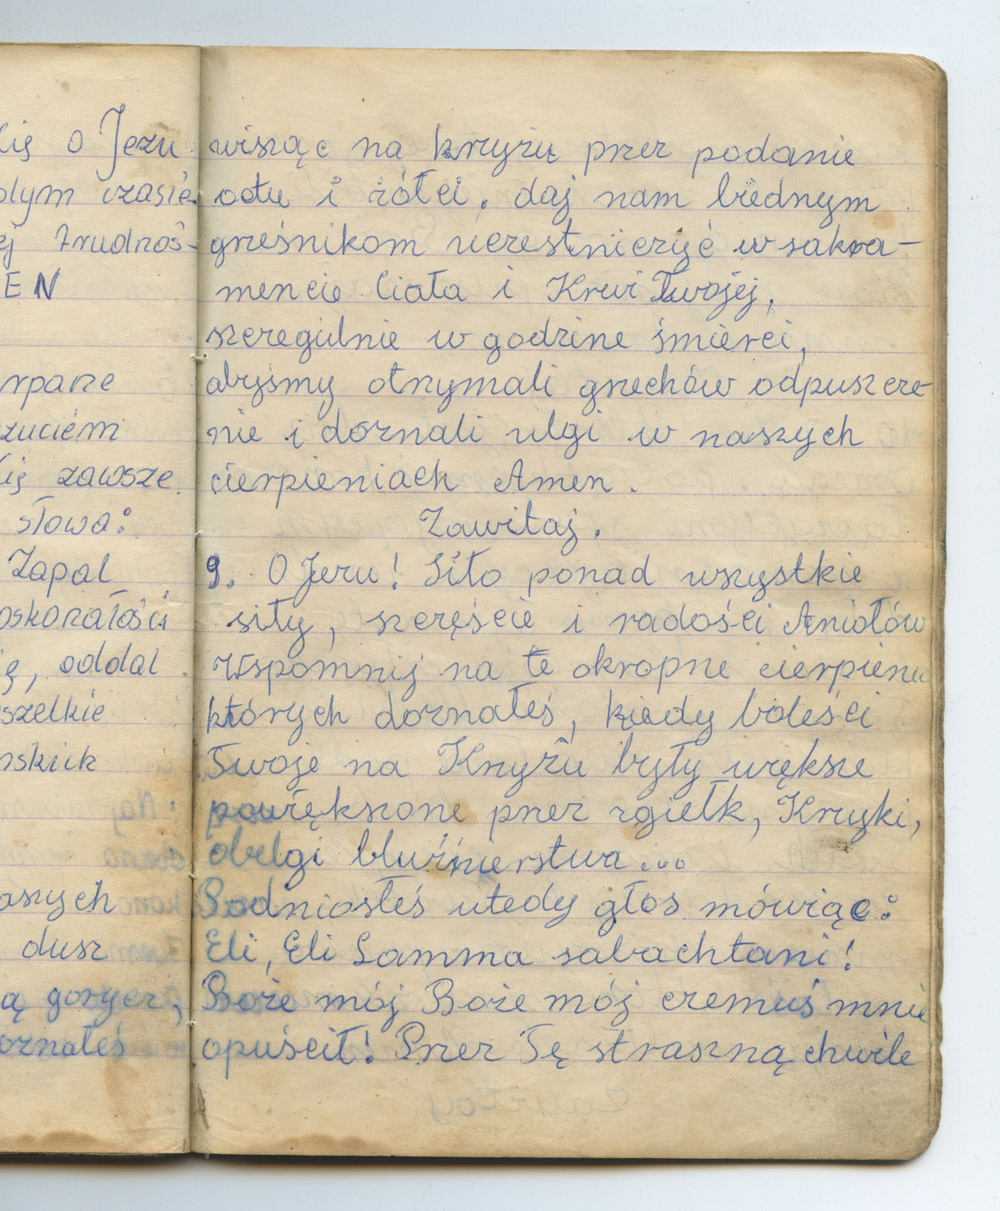 ię o Jezu
ołym czasie
ej trudnoś-
EN
rpane
zuciem
ię zawsze
słowa:
Zapal
oskonałości
ę, oddal
szelkie
nskich
aszych
dusz
ą gorycz,
oznałeś
wisząc na krzyżu przez podanie
octu i żółci, daj nam biednym
grześnikom uczestniczyć w sakra-
mencie Ciała i Krwi Twojej,
szczegulnie w godzine śmierci,
abyśmy otrzymali grzechów odpuszcze-
nie i doznali ulgi w naszych
cierpieniach Amen.
Zawitaj.
9. O Jezu! Siło ponad wszystkie
siły, szczęście i radości Aniołów
Wspomnij na te okropne cierpienia
których doznałeś, kiedy boleści
Twoje na Krzyżu były większe
powiększone przez zgiełk, Krzyki,
obelgi bluźnierstwa...
Podniosłeś wtedy głos mówiąc:
Eli, Eli Lamma sabachtani!
Boże mój Boże mój czemuś mnie
opuścił! Przez Tę straszną chwile